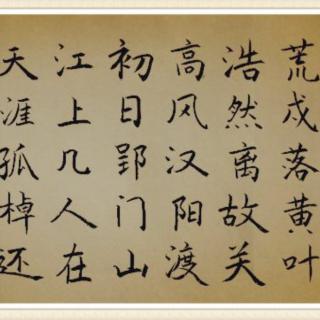 荒戍落黄叶
浩然离故关
高风汉阳渡
初日郢门山
江上几人在
天涯孤棹还